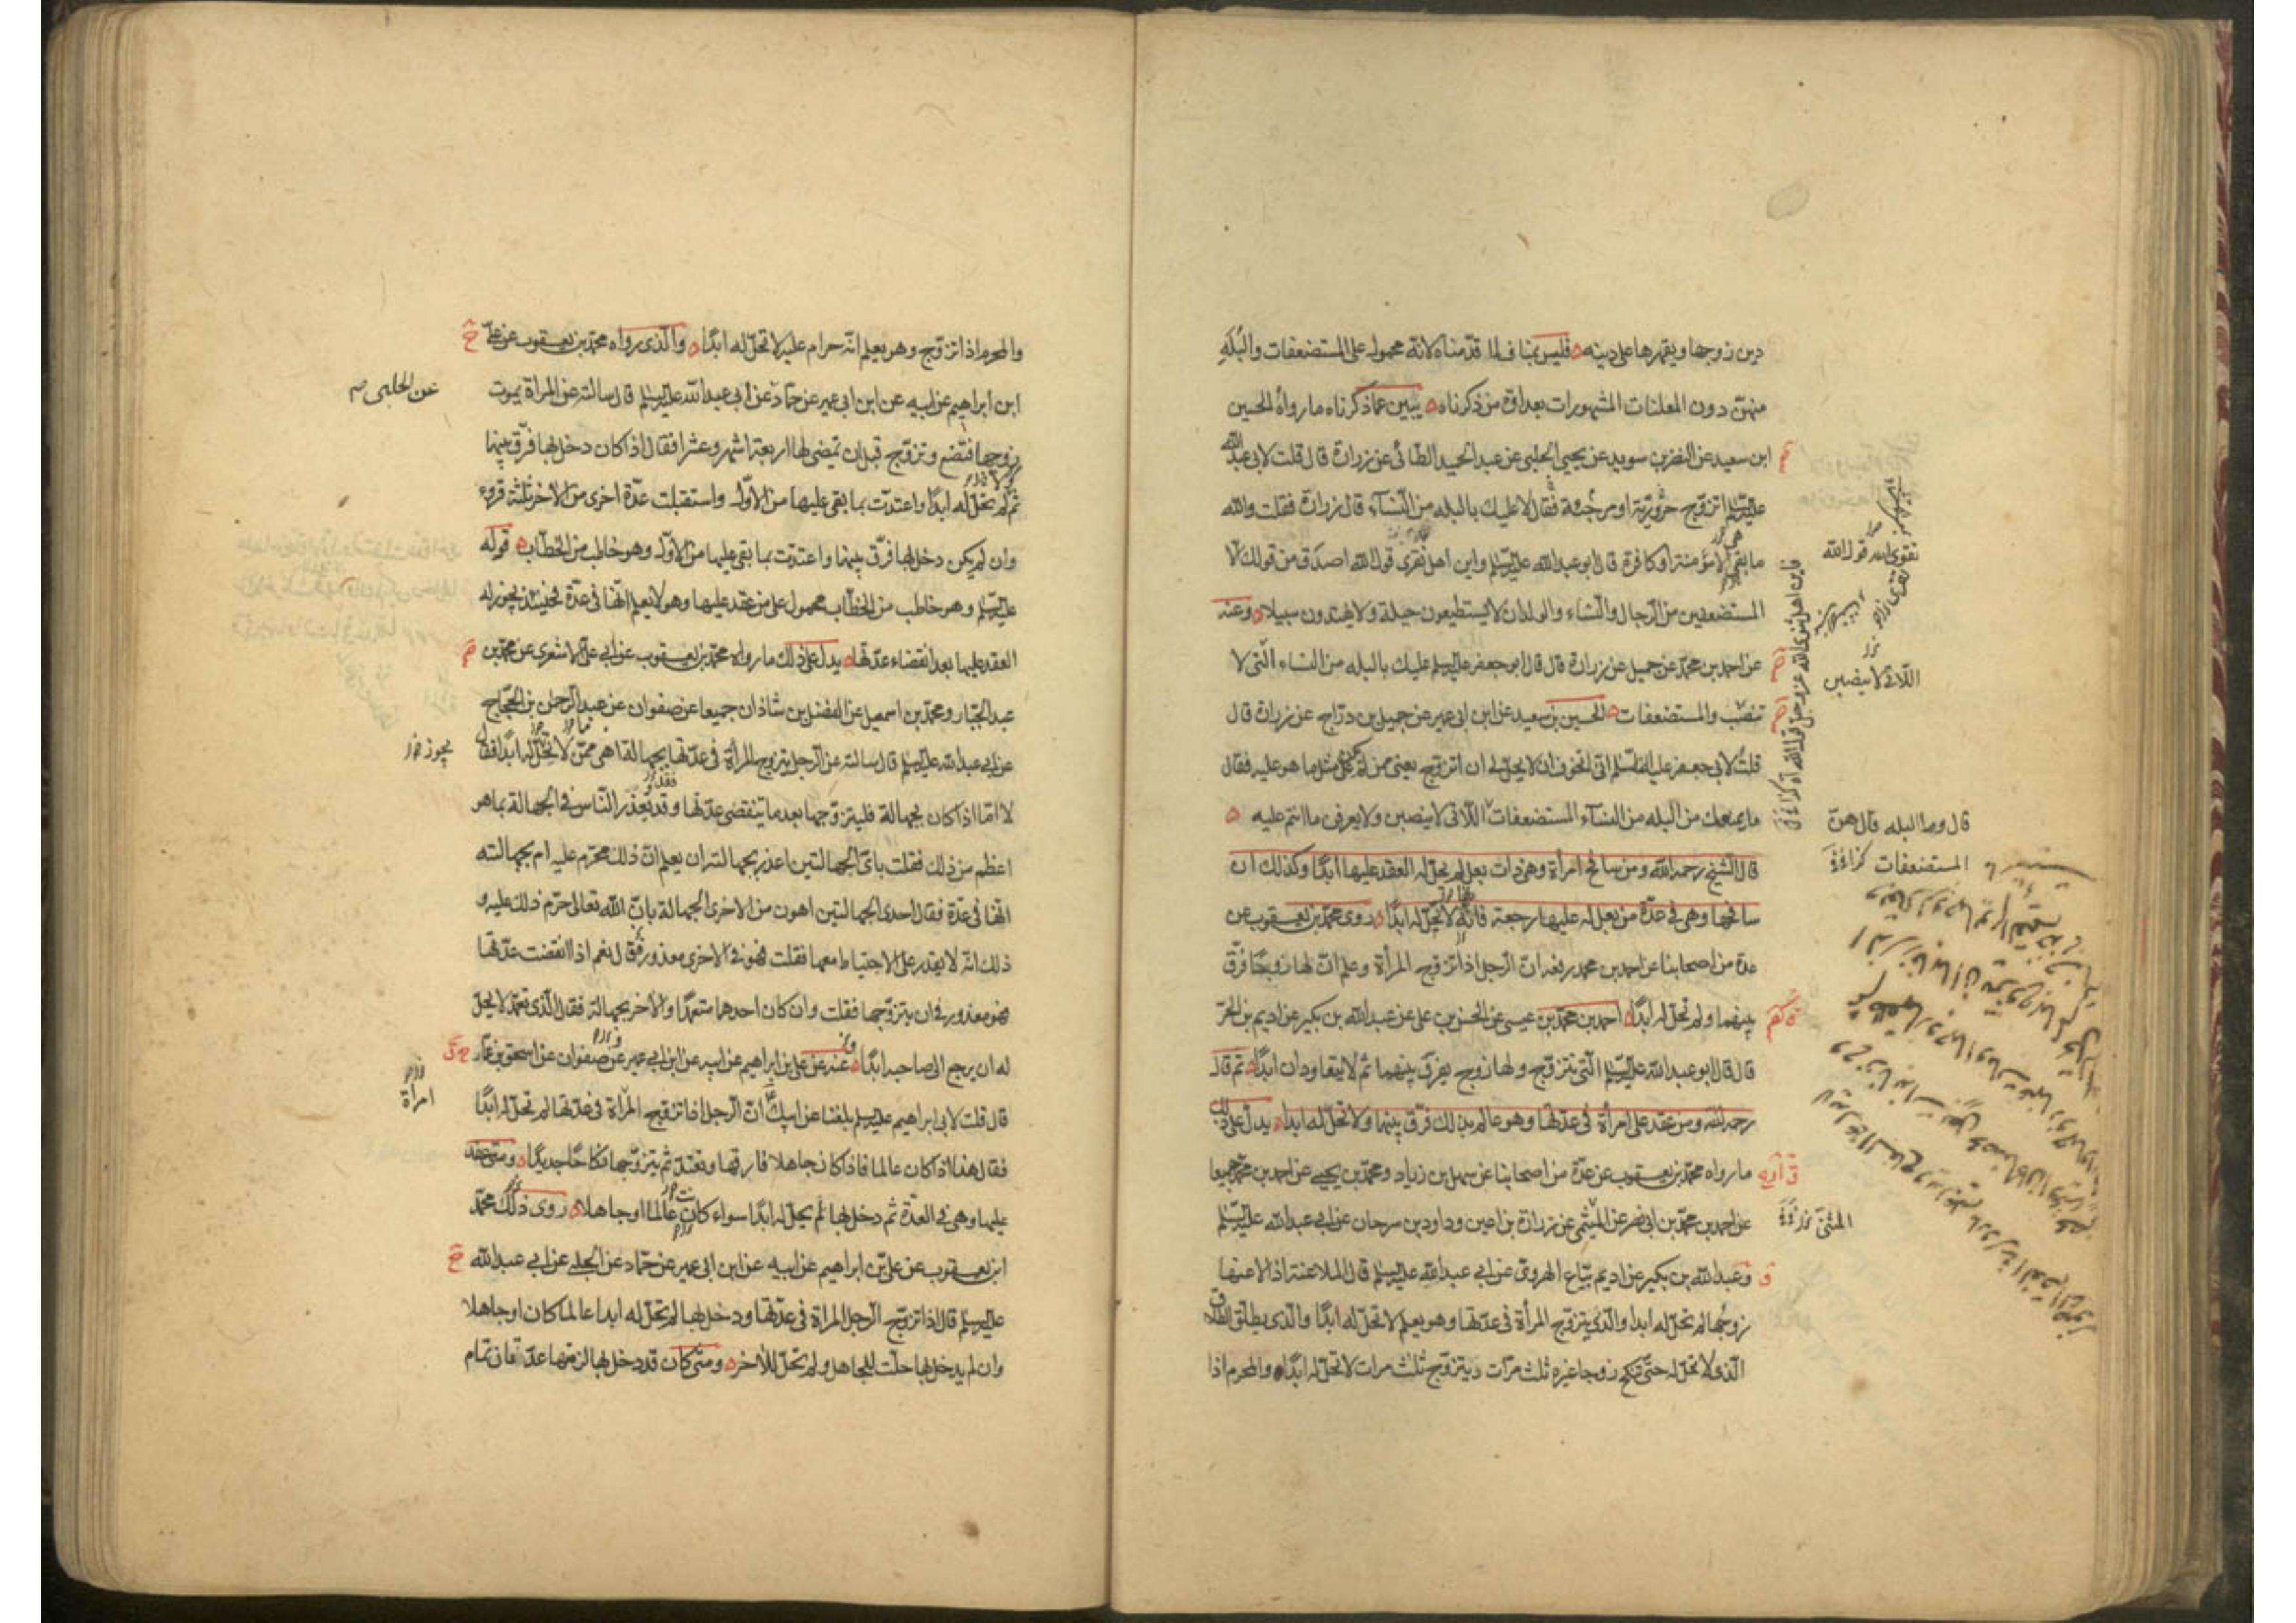 دين زوجها ويقهرها على دينه فليس بمناف لما قدمناه لانه محمول على المستضعفات والبله
منهن دون المعلنات المشهورات بعداوة من ذكرناه يبين عما ذكرناه ما رواه الحسين
ابن سعيد عن النضر بن سويد عن يحيى الحلبى عن عبد الحميد الطائى عن زرارة قال قلت لابى عبد الله
عليه السلم اتزوج حرورية او مرجئة فقال لا عليك بالبله من النساء قال زرارة فقلت والله
ما هى الا مؤمنة او كافرة قال ابو عبد الله عليه السلم واين اهل تقوى قول الله اصدق من قولك الا
المستضعفين من الرجال والنساء والولدان لا يستطيعون حيلة ولا يهتدون سبيلا وعنه
عن احمد بن محمد عن جميل عن زرارة قال قال ابو جعفر عليه السلم عليك بالبله من النساء التى لا
تنصب والمستضعفات الحسين بن سعيد عن ابن ابى عمير عن جميل بن دراج عن زرارة قال
قلت لابى جعفر عليه السلم انى اخوف ان لا يحل لى ان اتزوج يعنى ممن لم يكن مثل ما هو عليه فقال
ما يمنعك من البله من النساء المستضعفات اللاتى لا ينصبن ولا يعرفن ما انتم عليه
قال الشيخ رحمه الله ومن سافح امرأة وهى ذات بعل لم يحل له العقد عليها ابدا وكذلك ان
سافحها وهى فى عدة من بعل له عليها رجعة فانها لا تحل له ابدا روى محمد بن يعقوب عن
عدة من اصحابنا عن احمد بن محمد رفعه ان الرجل اذا تزوج المرأة وعلم ان لها زوجا فرق
بينهما ولم تحل له ابدا احمد بن محمد بن عيسى عن الحسن بن على عن عبد الله بن بكير عن اديم بن الحر
قال قال ابو عبد الله عليه السلم التى تتزوج ولها زوج يفرق بينهما ثم لا يتعاودان ابدا ثم قال
رحمه الله ومن عقد على امرأة فى عدتها وهو عالم بذلك فرق بينهما ولا تحل له ابدا يدل على ذلك
ما رواه محمد بن يعقوب عن عدة من اصحابنا عن سهل بن زياد ومحمد بن يحيى عن احمد بن محمد جميعا
عن احمد بن محمد بن ابى نصر عن الميثمى عن زرارة بن اعين وداود بن سرحان عن ابى عبد الله عليه السلم
وعبد الله بن بكير عن اديم بياع الهروى عن ابى عبد الله عليه السلم قال الملاعنة اذا لاعنها
زوجها لم تحل له ابدا والذى يتزوج المرأة فى عدتها وهو يعلم لا تحل له ابدا والذى يطلق الطلاق
الذى لا تحل له حتى تنكح زوجا غيره ثلث مرات ويتزوج ثلث مرات لا تحل له ابدا والمحرم اذا
تقوى الله قول الله
اللاتى لا ينصبن
قال وما البله قال هن
المستضعفات
المثنى
والمحرم اذا تزوج وهو يعلم انه حرام عليه لا تحل له ابدا والذى رواه محمد بن يعقوب عن على
ابن ابراهيم عن ابيه عن ابن ابى عمير عن حماد عن ابى عبد الله عليه السلم قال سالته عن المراة يموت
زوجها فتضع وتزوج قبل ان تمضى لها اربعة اشهر وعشرا فقال اذا كان دخل بها فرق بينهما
ثم لم تحل له ابدا واعتدت بما بقى عليها من الاول واستقبلت عدة اخرى من الاخر ثلثة قروء
وان لم يكن دخل بها فرق بينهما واعتدت بما بقى عليها من الاول وهو خاطب من الخطاب قوله
عليه السلم وهو خاطب من الخطاب محمول على من عقد عليها وهو لا يعلم انها فى عدة فحينئذ يجوز له
العقد عليها بعد انقضاء عدتها يدل على ذلك ما رواه محمد بن يعقوب عن ابى على الاشعرى عن محمد بن
عبد الجبار ومحمد بن اسمعيل عن الفضل بن شاذان جميعا عن صفوان عن عبد الرحمن بن الحجاج
عن ابى عبد الله عليه السلم قال سالته عن الرجل يتزوج المرأة فى عدتها بجهالة اهى ممن لا تحل له ابدا فقال
لا اما اذا كان بجهالة فليتزوجها بعد ما تنقضى عدتها وقد يعذر الناس فى الجهالة بما هو
اعظم من ذلك فقلت باى الجهالتين اعذر بجهالته ان يعلم ان ذلك محرم عليه ام بجهالته
انها فى عدة فقال احدى الجهالتين اهون من الاخرى الجهالة بان الله تعالى حرم ذلك عليه و
ذلك انه لا يقدر على الاحتياط معها فقلت فهو فى الاخرى معذور فقال نعم اذا انقضت عدتها
فهو معذور فى ان يتزوجها فقلت وان كان احدهما متعمدا والاخر بجهالة فقال الذى تعمد لا يحل
له ان يرجع الى صاحبه ابدا عنه عن على بن ابراهيم عن ابيه عن ابن ابى عمير عن صفوان عن اسحق بن عمار
قال قلت لابى ابراهيم عليه السلم بلغنا عن ابيك ان الرجل اذا تزوج المرأة فى عدتها لم تحل له ابدا
فقال هذا اذا كان عالما فاذا كان جاهلا فارقها وتعتد ثم يتزوجها نكاحا جديدا ومتى عقد
عليها وهى فى العدة ثم دخل بها لم يحل له ابدا سواء كان عالما او جاهلا روى ذلك محمد
ابن يعقوب عن على بن ابراهيم عن ابيه عن ابن ابى عمير عن حماد عن الحلبى عن ابى عبد الله
عليه السلم قال اذا تزوج الرجل المراة فى عدتها ودخل بها لم تحل له ابدا عالما كان او جاهلا
وان لم يدخل بها حلت للجاهل ولم تحل للاخر ومتى كان قد دخل بها لزمتها عدتان تمام
عن الحلبى
يجوز
امرأة